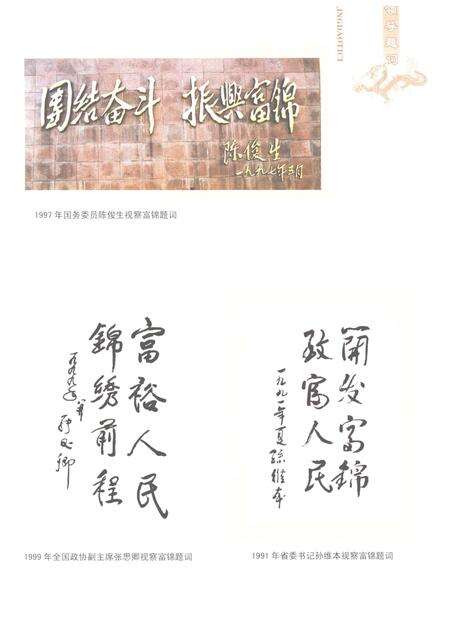 领导题词
LINGDAOTICI
團结奋斗 振興富錦
陈俊生
一九九七年三月
1997 年国务委员陈俊生视察富锦题词
富裕人民
錦绣前程
一九九九年
张思卿
1999 年全国政协副主席张思卿视察富锦题词
開发富錦
致富人民
一九九一年夏孙维本
1991 年省委书记孙维本视察富锦题词